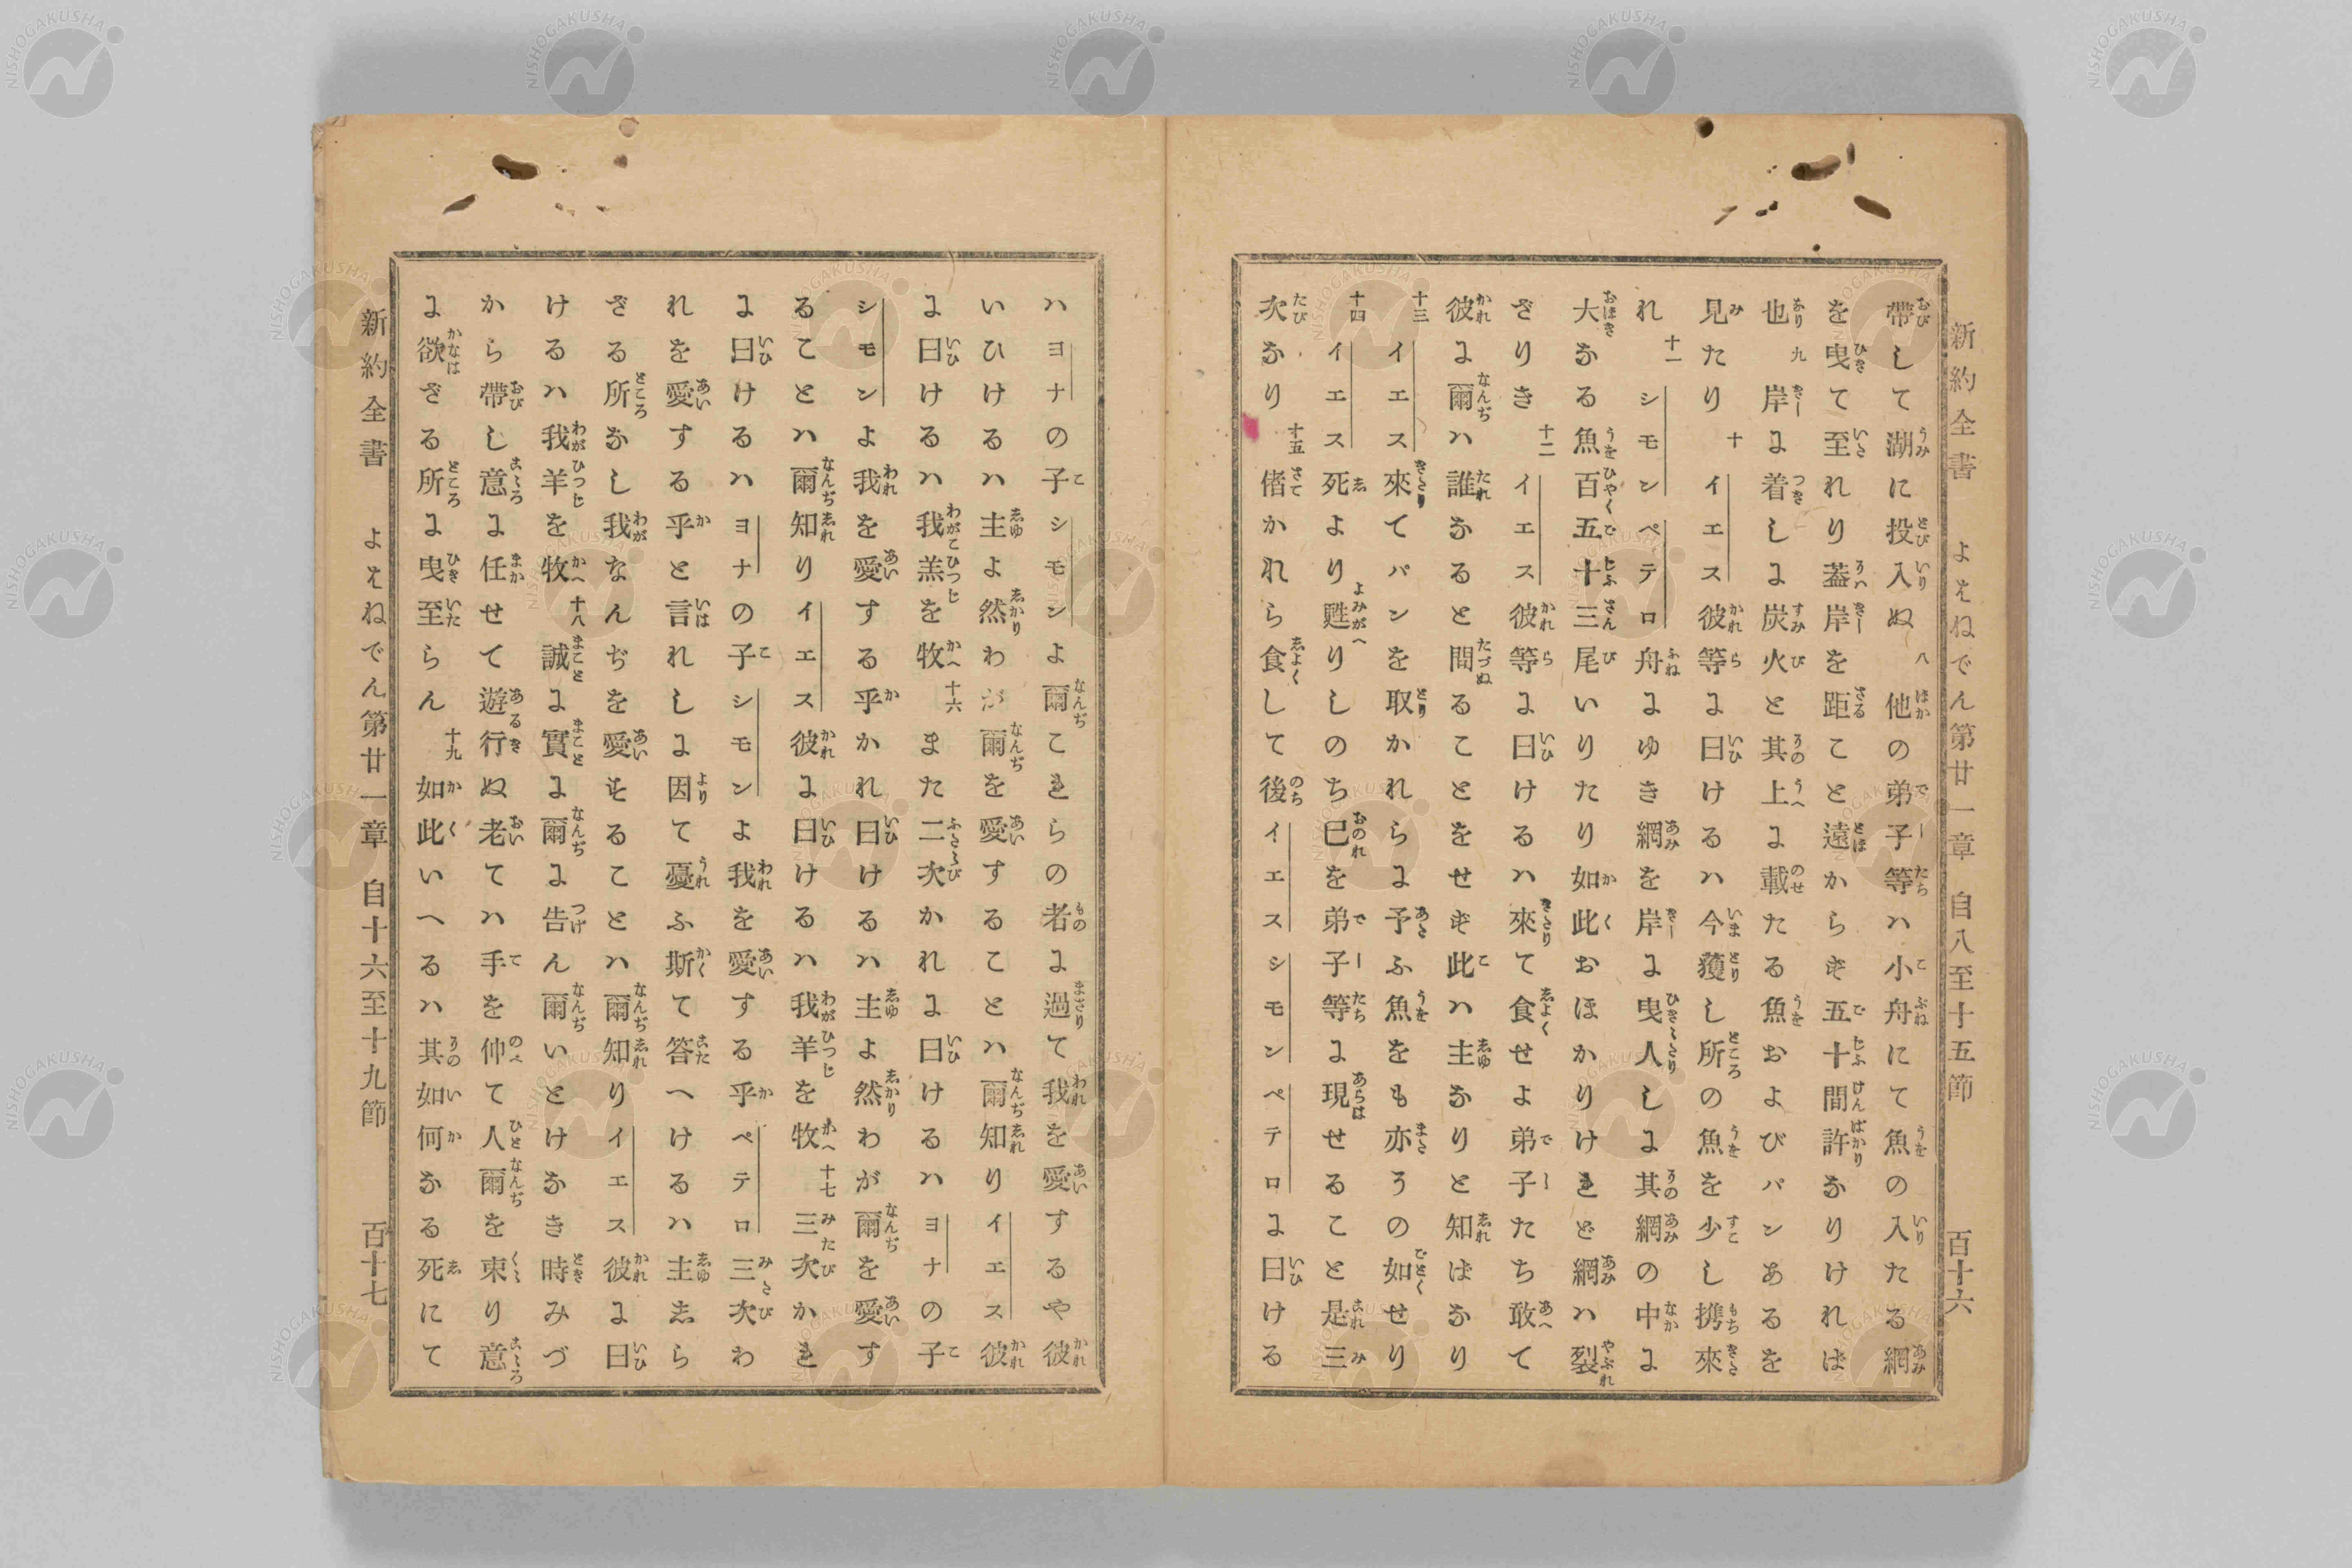 新約全書 よはねでん第廿一章 自八至十五節 百十六
帶して湖に投入ぬ 八 他の弟子等ハ小舟にて魚の入たる網
を曳て至れり蓋岸を距ことと遠からず五十間許なりければ
也 九 岸に着しに炭火と其上に載たる魚およびパンあるを
見たり 十 イエス彼等に曰けるハ今獲し所の魚を少し携來
れ 十一 シモンペテロ舟にゆき網を岸に曳人しに其網の中に
大なる魚百五十三尾いりたり如此おほかりけれど網ハ裂
ざりき 十二 イエス彼等に曰けるハ來て食せよ弟子たち敢て
彼に爾ハ誰なると問ることをせず此ハ主なりと知ばなり
十三 イエス來てパンを取かれらに予ふ魚をも亦うの如せり
十四 イエス死より甦りしのち已を弟子等に現せること是三
次なり 十五 偖かれら食して後イエスシモンペテロに曰ける
ハヨナの子シモンよ爾こきらの者に過て我を愛するや彼
いひけるハ主よ然わが爾を愛することハ爾知りイエス彼
に曰けるハ我羔を牧 十六 また二次かれに曰けるハヨナの子
シモンよ我を愛する乎かれ曰けるハ主よ然わが爾を愛す
ることハ爾知りイエス彼に曰けるハ我羊を牧 十七 三次かれ
に曰けるハヨナの子シモンよ我を愛する乎ペテロ三次わ
れを愛する乎と言れしに因て憂ふ斯て答へけるハ主しら
ざる所なし我なんぢを愛することハ爾知りイエス彼に曰
けるハ我羊を牧 十八 誠に實に爾に告ん爾いとけなき時みづ
から帶し意に任せて遊行ぬ老てハ手を伸て人爾を束り意
に欲ざる所に曳至らん 十九 如此いへるハ其如何なる死にて
新約全書 よはねでん第廿一章 自十六至十九節 百十七
NISHOGAKUSHA